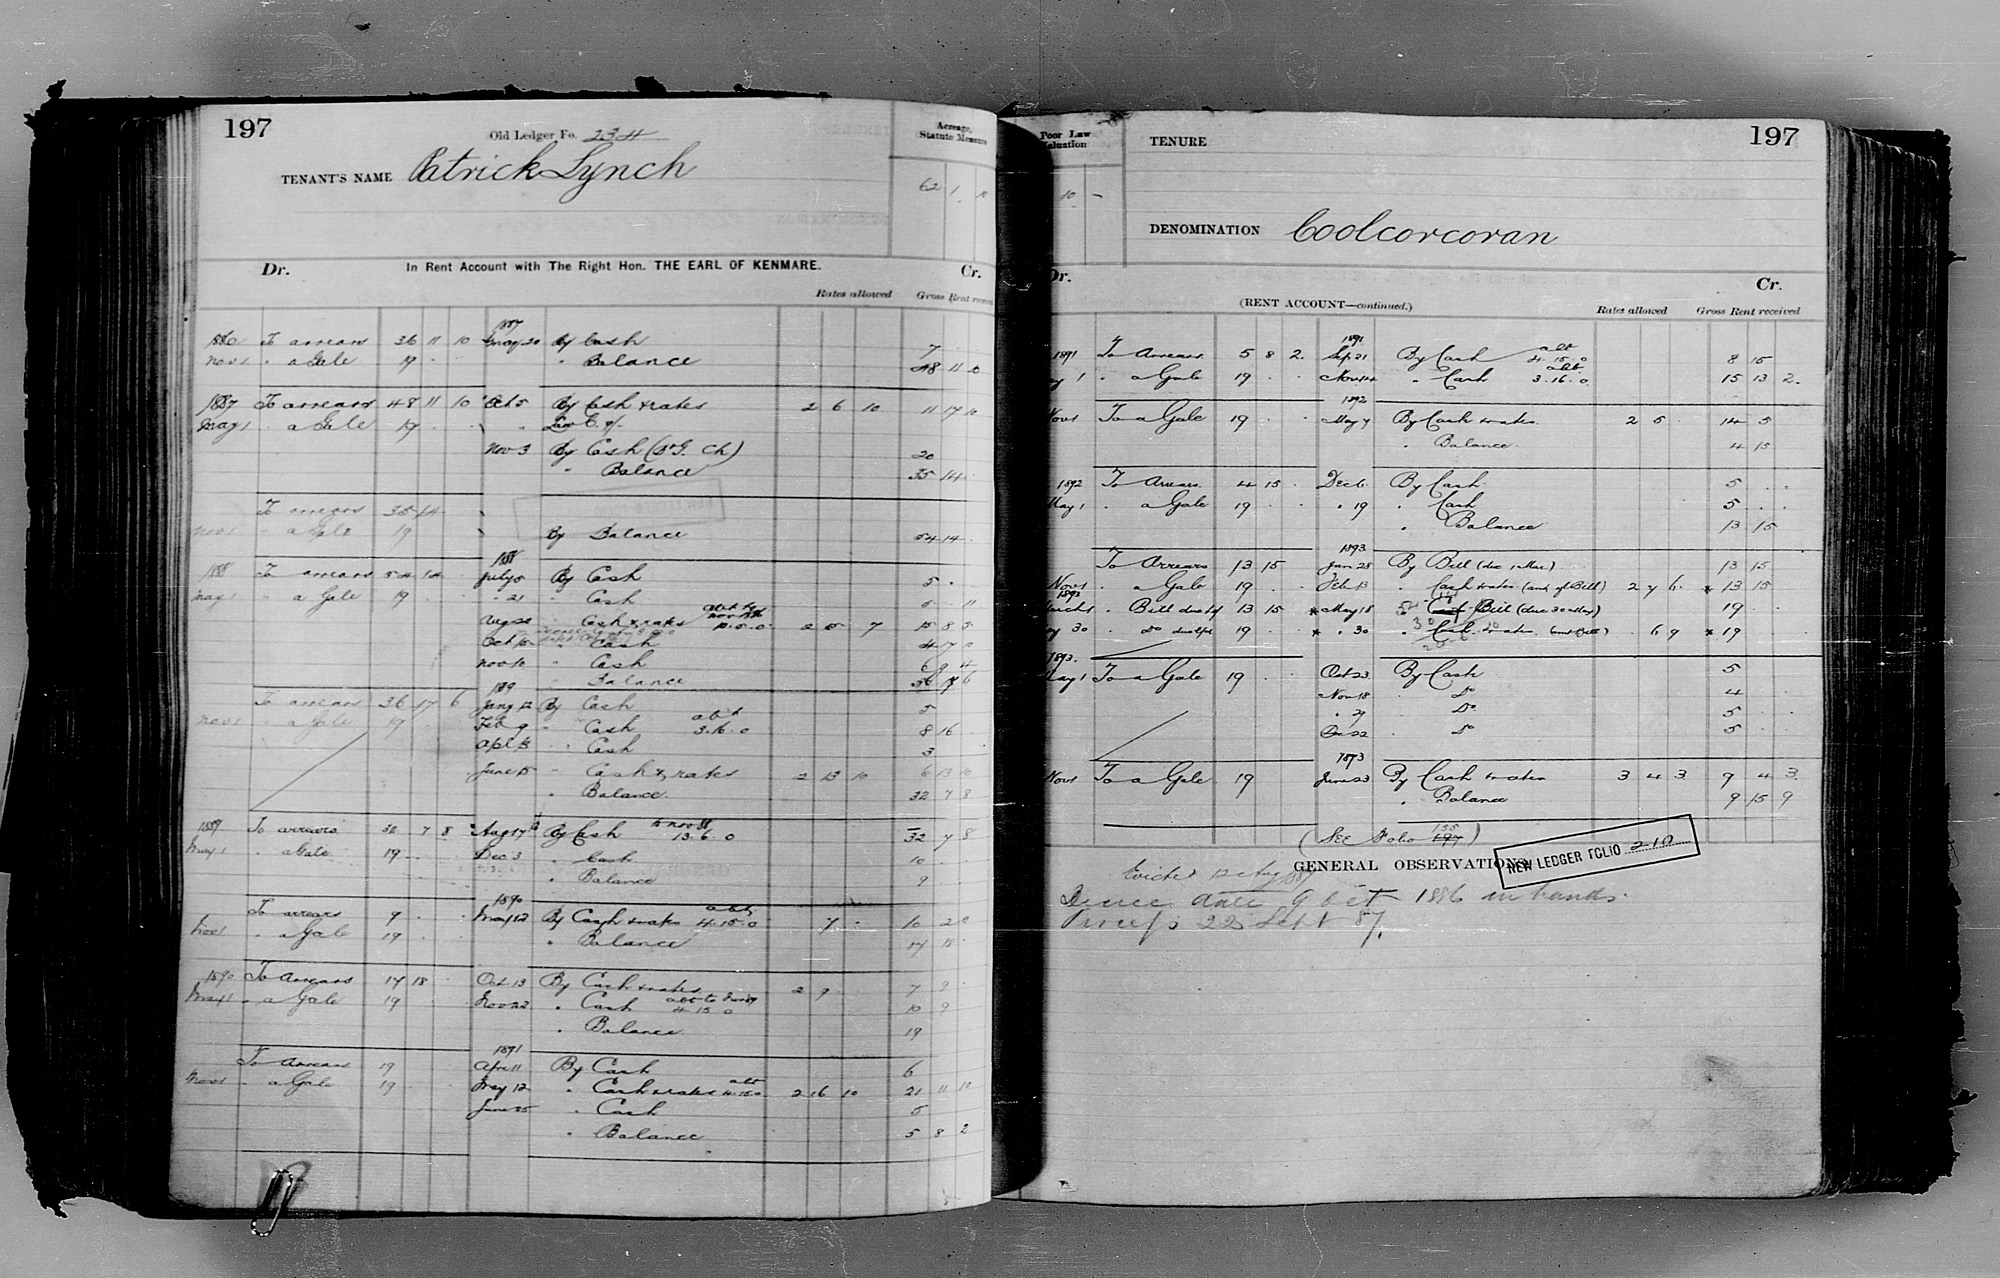 197
Old Ledger Fo. 234
TENANT'S NAME Patrick Lynch
Acreage, Statute Measure
62 1
Dr. In Rent Account with The Right Hon. THE EARL OF KENMARE. Cr.
Rates allowed Gross Rent received
1887
To arrears 36 11 10 May 20 By Cash 7
Nov 1 " a Gale 19 " Balance 48 11 10
1887 To arrears 48 11 10 Oct 5 By Cash & rates 2 6 10 11 17 10
May 1 " a Gale 19
Nov 3 By Cash 20
" Balance 35 14
To arrears 35 14
Nov 1 " a Gale 19 By Balance 54 14
1888
1888 To arrears 54 14 July 5 By Cash 5
May 1 " a Gale 19 " 21 " Cash
Aug 22 " Cash & rates 2 5 7 15 8 5
Oct 15 " Cash 4 17
Nov 10 " Cash 6 9 4
" Balance 36 17 6
1889
To arrears 36 17 6 Jany 12 By Cash 5
Nov 1 " a Gale 19 Feb 9 " Cash abt 3.16.0 8 16
Apl " Cash 3
June 15 " Cash & rates 2 13 10 6 13 10
" Balance 32 7 8
1889 To arrears 32 7 8 Aug 17 By Cash to Nov 88 13.6.0 32 7 8
May 1 " a Gale 19 Dec 3 " Cash 10
" Balance 9
1890
To arrears 9 May 12 By Cash & rates abt 4.15.0 7 10 2 0
Nov 1 " a Gale 19 " Balance 17 18
1890 To Arrears 17 18 Oct 13 By Cash & rates 2 9 7 9
May 1 " a Gale 19 Nov 22 " Cash 4 15 0 10 9
" Balance 19
1891
To Arrears 19 Apr 11 By Cash 6
Nov 1 " a Gale 19 May 12 " Cash & rates abt 4.15.0 2 16 10 21 11 10
June 25 " Cash 5
" Balance 5 8 2
Poor Law Valuation
10 –
TENURE
197
DENOMINATION Coolcorcoran
Dr. Cr.
(RENT ACCOUNT—continued.)
Rates allowed Gross Rent received
1891
1891 To Arrears 5 8 2 Sep 21 By Cash abt 4.15.0 8 15
" a Gale 19 Nov " Cash abt 3.16.0 15 13 2
1892
Nov 1 To a Gale 19 May 7 By Cash & rates 2 5 14 5
" Balance 4 15
1892 To Arrears 4 15 Dec 6 By Cash 5
May 1 " a Gale 19 " 19 " Cash 5
" Balance 13 15
1893
To Arrears 13 15 Jan 28 By Bill (due 1 Mar) 13 15
Nov 1 " a Gale 19 Feb 13 " Cash & rates (amt of Bill) 2 7 6 * 13 15
1893
" Bill due 13 15 * May 18 " Bill (due 30 May) 19
30 " Do due 19 * " 30 " Cash & rates (amt Bill) 6 9 * 19
1893.
May 1 To a Gale 19 Oct 23 By Cash 5
Nov 18 " Do 4
" 29 " Do 5
Dec 22 " Do 5
1893
Nov 1 To a Gale 19 June 23 By Cash & rates 3 4 3 9 4 3
" Balance 9 15 9
(See Folio 197 155)
GENERAL OBSERVATIONS
NEW LEDGER FOLIO 210
Evicted 12 Aug 1887
Decree date 9 Oct 1886 in hands.
Process 22 Sept 87.